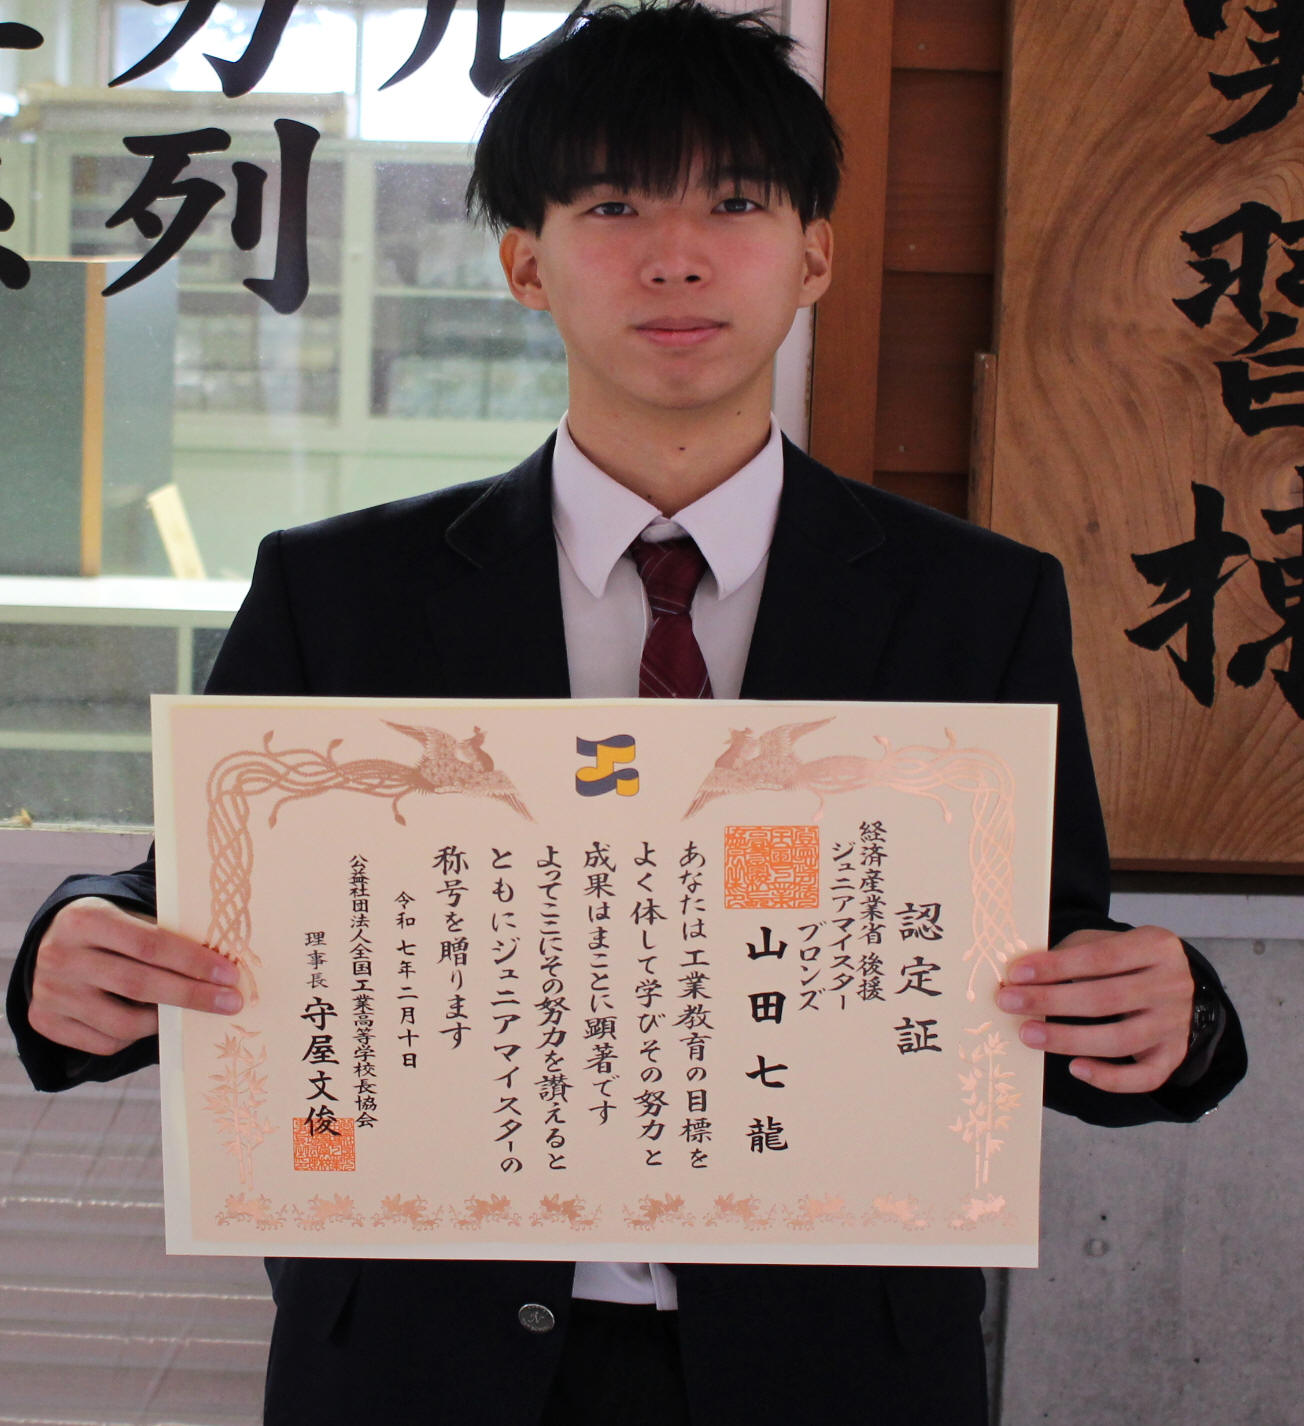 実習棟
認定証
経済産業省後援
ジュニアマイスター
ブロンズ
山田七龍
あなたは工業教育の目標を
よく体して学びその努力と
成果はまことに顕著です
よってここにその努力を讃えると
ともにジュニアマイスターの
称号を贈ります
令和七年二月十日
公益社団法人全国工業高等学校長協会
理事長 守屋文俊
列